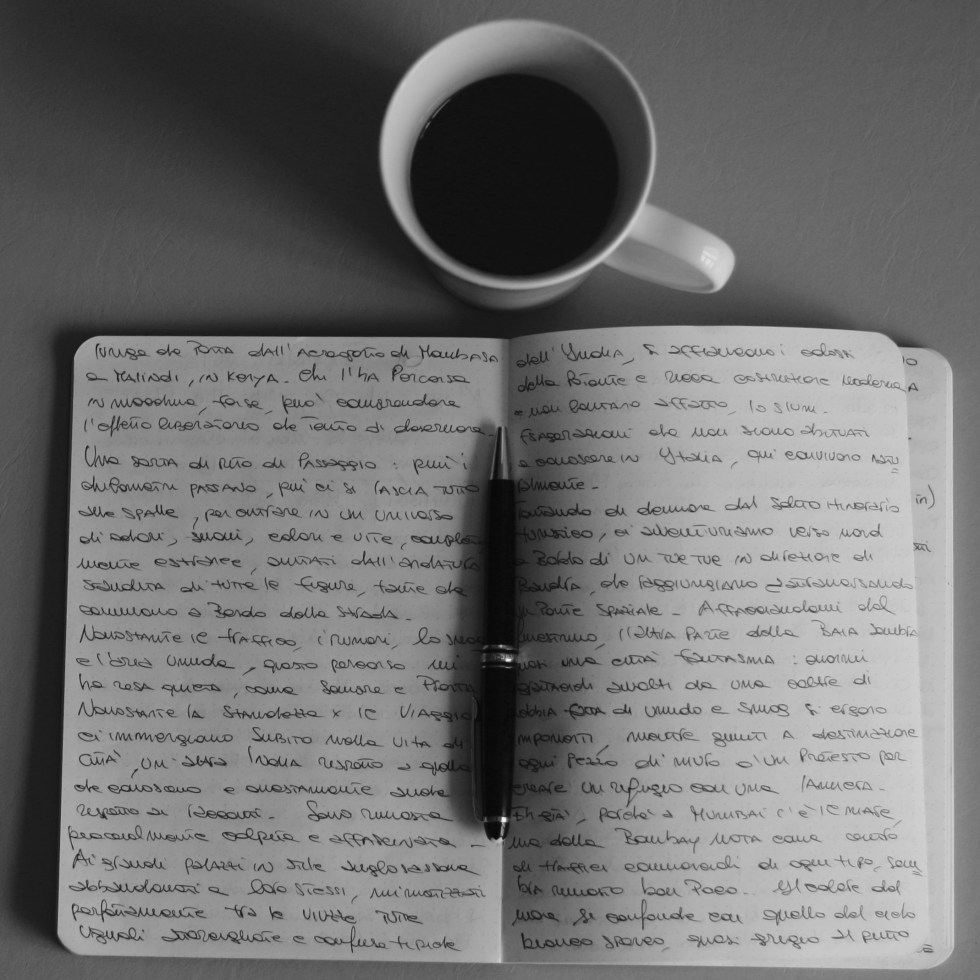 lunga che porta dall'aeroporto di Mombasa
a Malindi, in Kenya. Chi l'ha percorsa
in macchina, forse, può comprendere
l'effetto liberatorio che tento di descrivere.
Una sorta di rito di passaggio: più i
chilometri passano, più ci si lascia tutto
alle spalle, per entrare in un universo
di odori, suoni, colori e vite,
mente estranee, dall'andatura
di tutte le figure, che
camminano a bordo della strada.
Nonostante il traffico, i rumori, lo smog
e l'aria umida, questo percorso mi
ha resa quieta, come sempre e pronta
Nonostante la stanchezza x il viaggio
ci immergiamo subito nella vita di
città, un'altra India rispetto a quella
che conoscono e onestamente anche
rispetto ai racconti. Sono rimasta
piacevolmente colpita e affascinata.
Ai grandi palazzi in stile anglosassone
abbandonati a loro stessi, mimetizzati
perfettamente tra le viuzze tutte
uguali e confusa tipiche
dell'India, si affiancano i colossi
della e ricca costruzione moderna
e non lontano affatto, lo slum.
che non siamo abituati
a conoscere in Italia, qui convivono
almente.
di deviare dal solito itinerario
turistico, ci avventuriamo verso nord
a bordo di un tuc tuc in direzione di
Bandra, che raggiungiamo attraversando
un ponte spaziale. Affacciandomi dal
finestrino, l'altra parte della baia sembra
una città fantasma: enormi
avvolti da una coltre di
fatta di umido e smog si ergono
imponenti, mentre giunti a destinazione
ogni pezzo di muro è un pretesto per
creare un rifugio con una lamiera.
perché a Mumbai c'è il mare,
ma della Bombay nota come centro
di traffici commerciali di ogni tipo, sem
bra rimasto ben poco. Il colore del
mare si confonde con quello del cielo
bianco sporco, quasi grigio